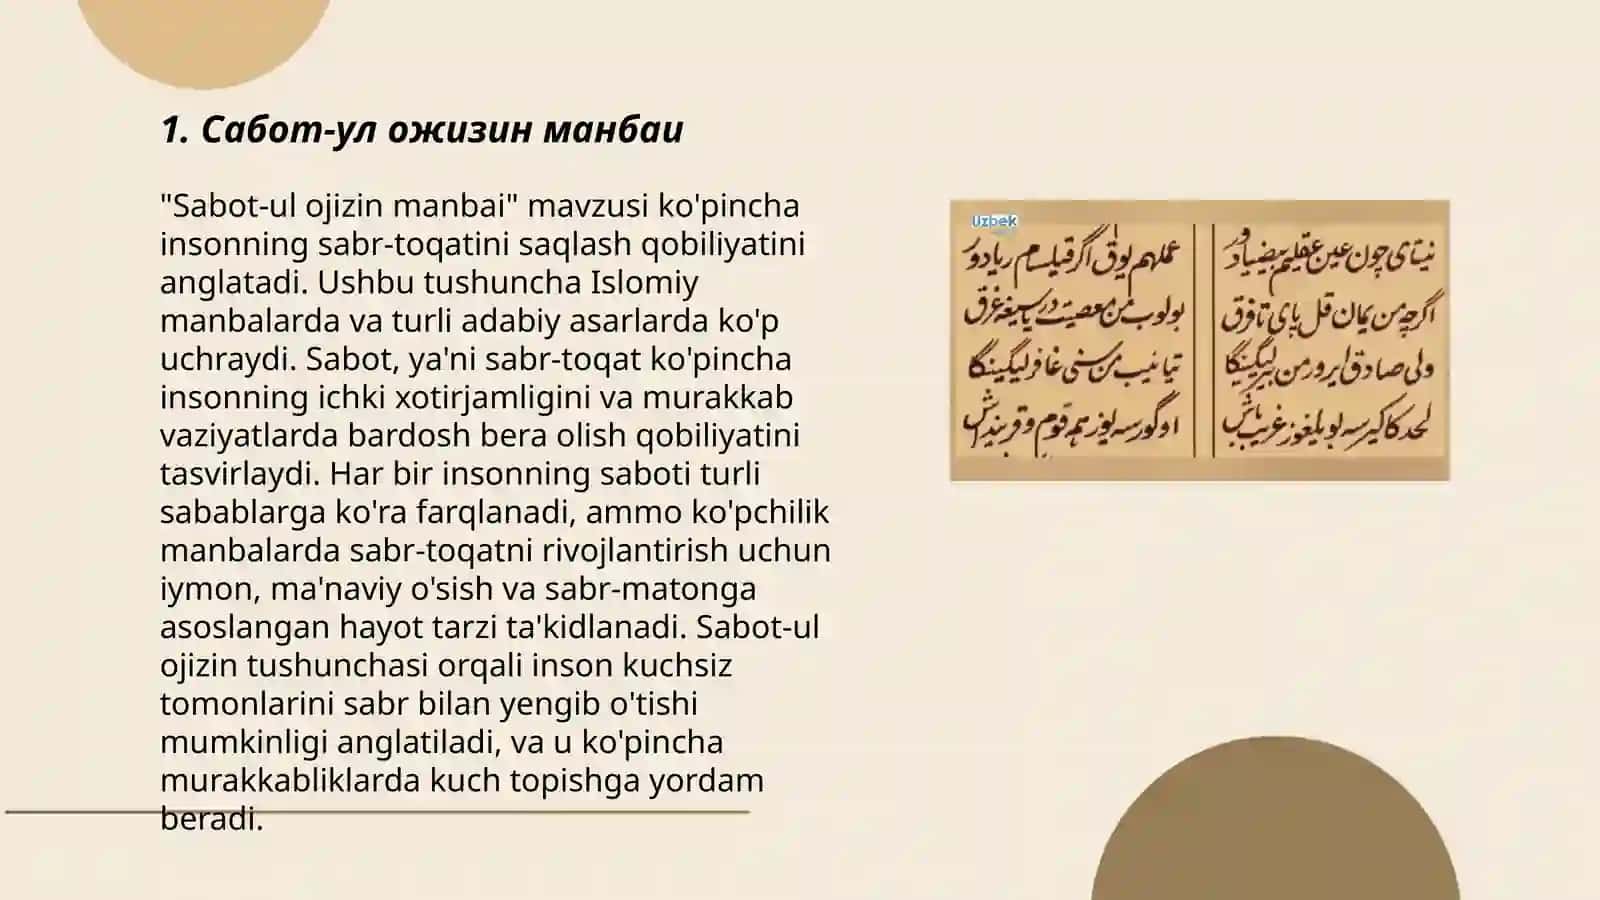 1. Сабот-ул ожизин манбаи
"Sabot-ul ojizin manbai" mavzusi ko'pincha
insonning sabr-toqatini saqlash qobiliyatini
anglatadi. Ushbu tushuncha Islomiy
manbalarda va turli adabiy asarlarda ko'p
uchraydi. Sabot, ya'ni sabr-toqat ko'pincha
insonning ichki xotirjamligini va murakkab
vaziyatlarda bardosh bera olish qobiliyatini
tasvirlaydi. Har bir insonning saboti turli
sabablarga ko'ra farqlanadi, ammo ko'pchilik
manbalarda sabr-toqatni rivojlantirish uchun
iymon, ma'naviy o'sish va sabr-matonga
asoslangan hayot tarzi ta'kidlanadi. Sabot-ul
ojizin tushunchasi orqali inson kuchsiz
tomonlarini sabr bilan yengib o'tishi
mumkinligi anglatiladi, va u ko'pincha
murakkabliklarda kuch topishga yordam
beradi.
Uzbek
اگرچه من یمان قل پای تا فرق
بولوب من معصیت غرق
ولی صادق ایرورمن